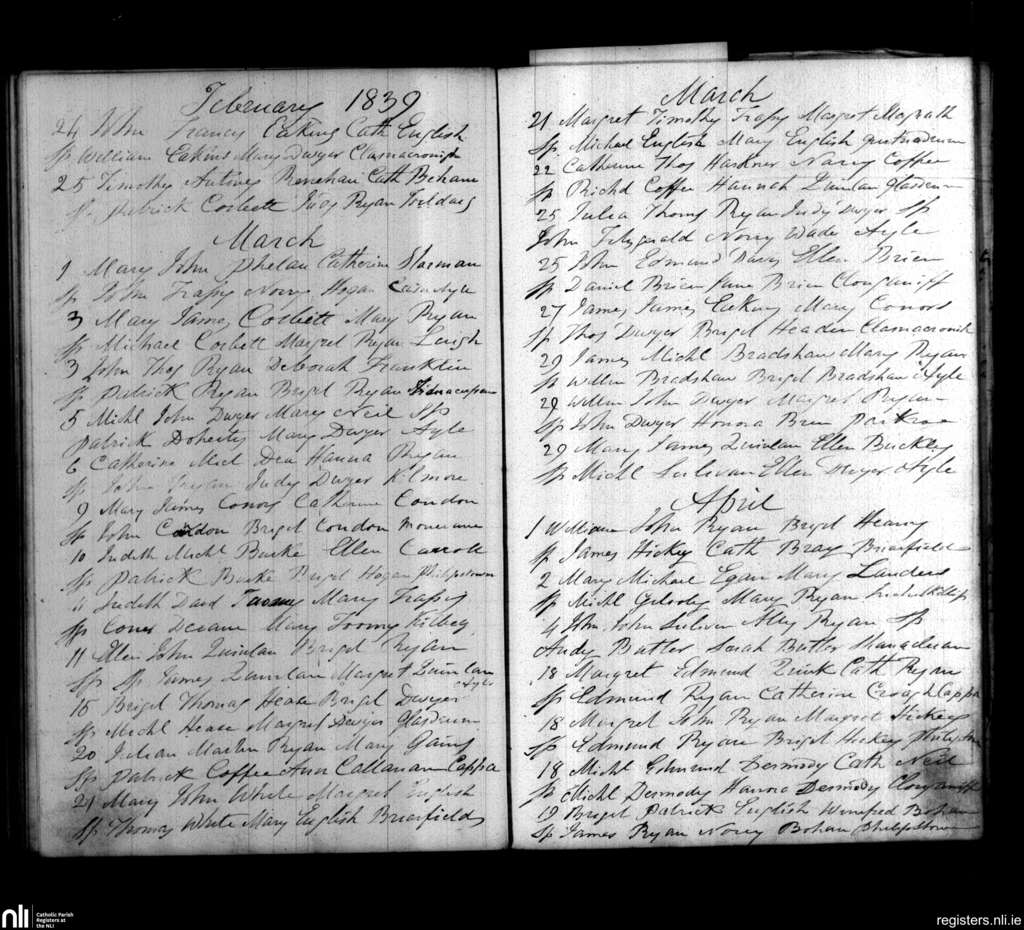 February 1839
24 John Francis Eakins Cath English
Sp William Eakins Mary Dwyer Clamacronish
25 Timothy Renehan Cath Behane
Sp Patrick Corbett Ryan
March
1 Mary John Phelan Catherine
Sp John Trapy Norry Hogan
3 Mary James Corbett Mary Ryan
Sp Michael Corbett Margret Ryan Leugh
3 John Thos Ryan Deborah Franklin
Sp Patrick Ryan Briget Ryan
5 Michl John Dwyer Mary Neil Sp
Patrick Doherty Mary Dwyer Ayle
6 Catherine Dea Hanna Ryan
Sp John Judy Dwyer Kilmore
9 Mary James Conors Catherine Condon
Sp John Condon Briget Condon
10 Judith Michl Burke Ellen Carroll
Sp Patrick Burke Briget Hogan Philipstown
11 Judith David Mary Trapy
Sp Mary Toomy Kilbeg
11 Ellen John Quinlan Briget Ryan
Sp Sp James Quinlan Margret Quinlan
Ayle
16 Briget Thomas Hease Briget Dwyer
Sp Michl Hease Margret Dwyer Glasdrum
20 Martin Ryan Mary
Sp Patrick Coffee Ann Callanan Cappa
21 Mary John White Margret English
Sp Thomas White Mary English Briarfields
March
21 Margret Timothy Trapy Margret Magrath
Sp Michael English Mary English
22 Catherine Thos Harkner Nancy Coffee
Sp Richd Coffee Hannah Quinlan Glasdrum
25 Julia Thomas Ryan Judy Dwyer Sp
John Fitzgerald Norry Wade Ayle
25 John Edmund Davis Ellen Brien
Sp Daniel Brien June Brien Clonganiff
27 James James Eakins Mary Conors
Sp Thos Dwyer Briget Headen Clamacronish
29 James Michl Bradshaw Mary Ryan
Sp Willm Bradshaw Briget Bradshaw Ayle
29 Willm John Dwyer Margret Ryan
Sp John Dwyer Honora Parkroe
29 Mary James Quinlan Ellen Buckley
Sp Michl Sulevan Ellen Dwyer Ayle
April
1 William John Ryan Briget Heany
Sp James Hickey Cath Bray Briarfields
2 Mary Michael Egan Mary Landers
Sp Michl Mary Ryan
4 John John Sulivan Alley Ryan Sp
Andy Butler Sarah Butler Shanacloon
18 Margret Edmund Quirk Cath Ryan
Sp Edmund Ryan Catherine Cappa
18 Margret John Ryan Margret Hickey
Sp Edmund Ryan Briget Hickey Philipstown
18 Michl Edmund Dermody Cath Neil
Sp Michl Dermody Hanna Dermody Clonganiff
19 Briget Patrick English Winefred Bohan
Sp James Ryan Norry Bohan Philipstown
nli
Catholic Parish
Registers at
the NLI
registers.nli.ie